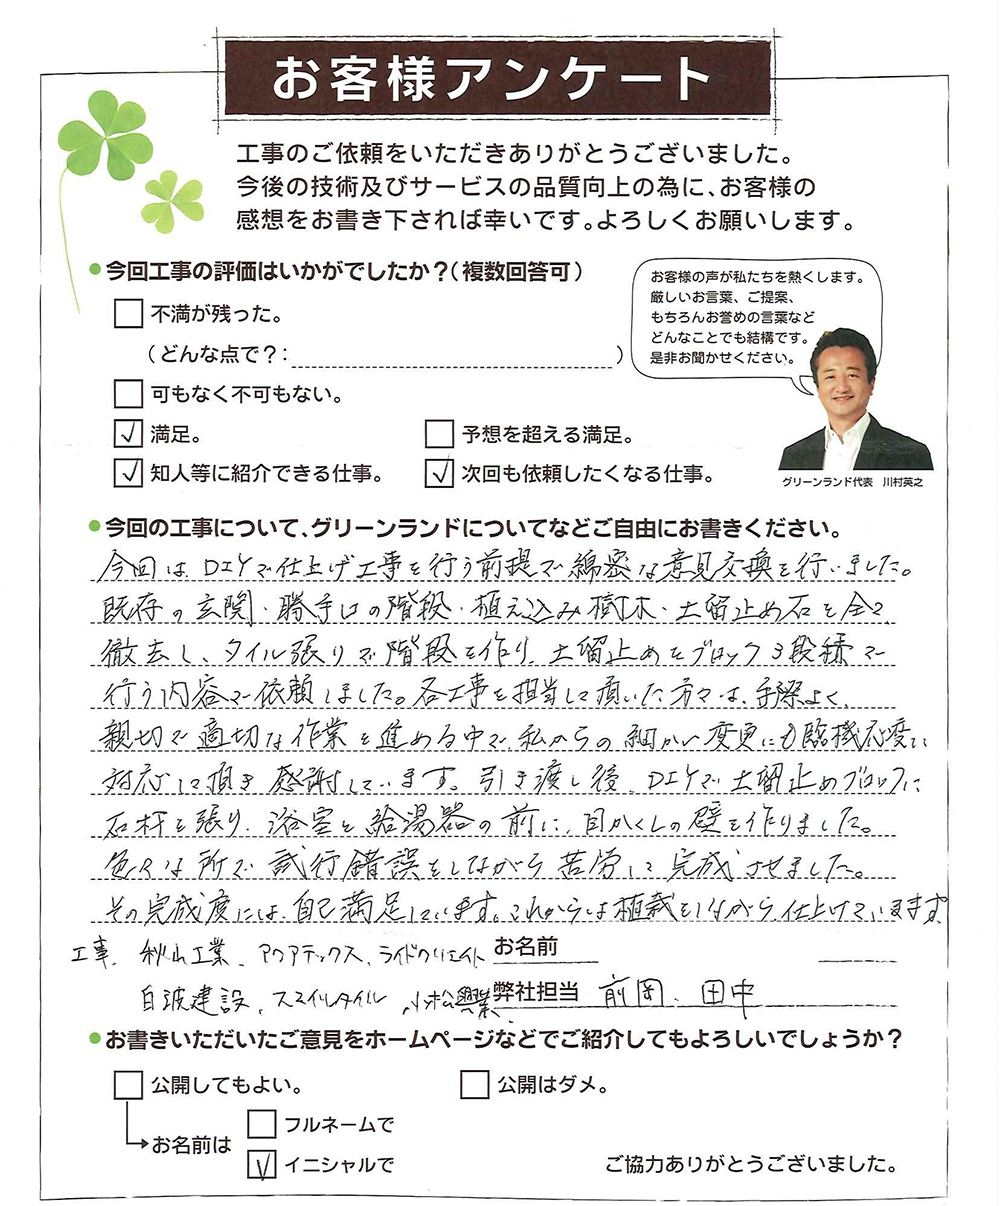 お客様アンケート
工事のご依頼をいただきありがとうございました。
今後の技術及びサービスの品質向上の為に、お客様の
感想をお書き下されば幸いです。よろしくお願いします。
●今回工事の評価はいかがでしたか？（複数回答可）
お客様の声が私たちを熱くします。
厳しいお言葉、ご提案、
もちろんお誉めの言葉など
どんなことでも結構です。
是非お聞かせください。
□ 不満が残った。
（どんな点で？：　）
□ 可もなく不可もない。
☑ 満足。
□ 予想を超える満足。
☑ 知人等に紹介できる仕事。
☑ 次回も依頼したくなる仕事。
グリーンランド代表　川村英之
●今回の工事について、グリーンランドについてなどご自由にお書きください。
今回は、DIYで仕上げ工事を行う前提で綿密な意見交換を行いました。
既存の玄関・勝手口の階段・植え込み樹木・土留止め石を全て
徹去し、タイル張りで階段を作り、土留止めをブロック3段積で
行う内容で依頼しました。各工事を担当して頂いた方々は、手際よく、
親切で適切な作業を進める中で、私からの細かい変更にも臨機応変に
対応して頂き感謝しています。引き渡し後、DIYで土留止めブロックに
石材を張り、浴室と給湯器の前に、目かくしの壁を作りました。
色々な所で試行錯誤をしながら苦労して完成させました。
その完成度には、自己満足しています。これからは植栽をしながら仕上げていきます。
工事、秋山工業、アクアテックス、ライドクリエイト
お名前
白波建設、スマイルタイル、小松興業、
弊社担当　前岡、田中
●お書きいただいたご意見をホームページなどでご紹介してもよろしいでしょうか？
□ 公開してもよい。
□ 公開はダメ。
お名前は
□ フルネームで
☑ イニシャルで
ご協力ありがとうございました。